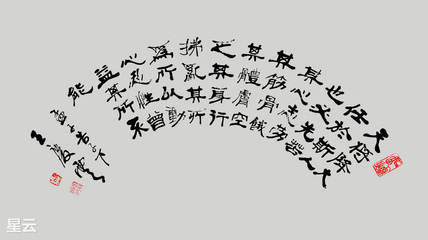 天將降大
任於斯人
也必先苦
其心志勞
其筋骨餓
其體膚空
乏其身行
拂亂其所
為所以動
心忍性曾
益其所不
能
孟子告子下
王慶雲
星云